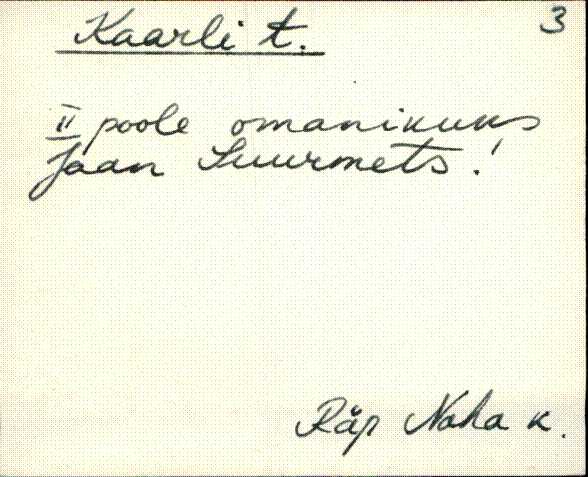 Kaarli t. 3
II poole omanikuks
Jaan Suurmets!
Räp Naha k.